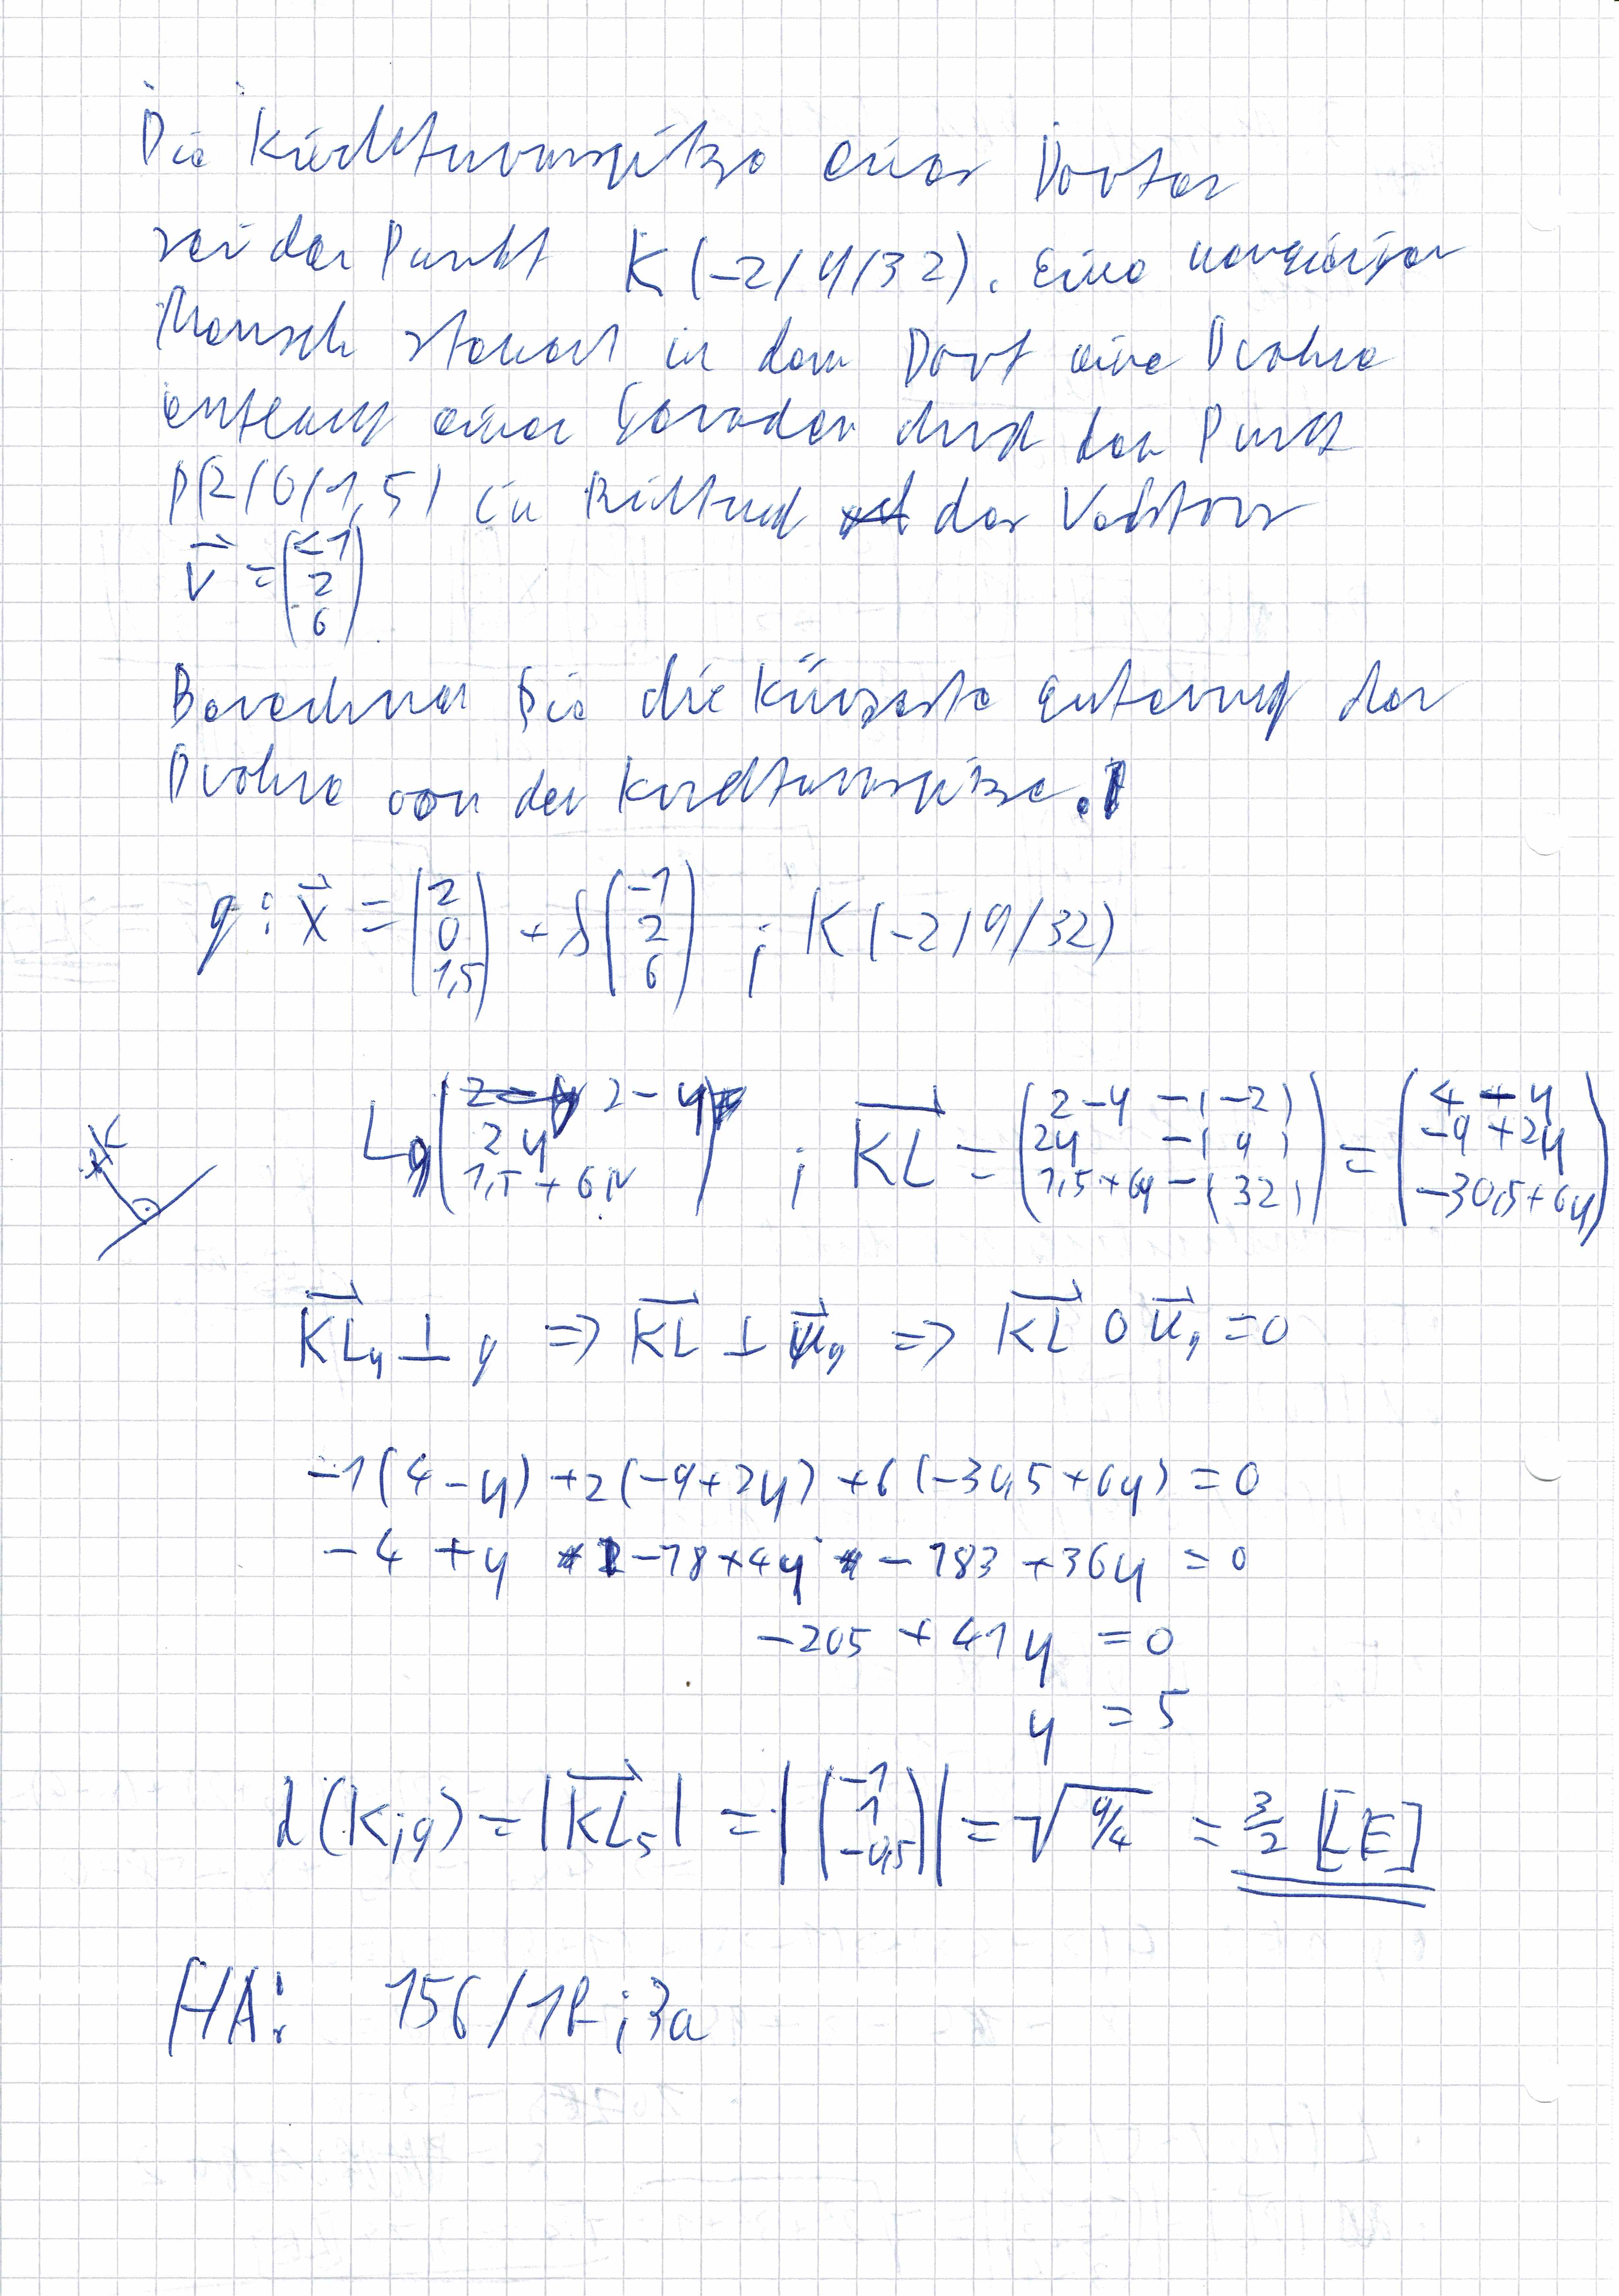 Die Kirchturmspitze eines Dorfes
sei der Punkt K(-2/9/32). Eine neugieriger
Mensch steuert in dem Dorf eine Drohne
entlang einer Geraden durch den Punkt
P(2/0/1,5) in Richtung des Vektors
v⃗ = (-1 2 6)
Berechnen Sie die kürzeste Entfernung der
Drohne von der Kirchturmspitze.
g: x⃗ = (2 0 1,5) + λ(-1 2 6) ; K(-2/9/32)
K
L (2-μ 2μ 1,5+6μ) ; KL⃗ = (2-μ-(-2) 2μ-(9) 1,5+6μ-(32)) = (4-μ -9+2μ -30,5+6μ)
KL⃗μ ⊥ g => KL⃗ ⊥ u⃗g => KL⃗ ∘ u⃗g = 0
-1(4-μ) + 2(-9+2μ) + 6(-30,5+6μ) = 0
-4 + μ - 18 + 4μ - 183 + 36μ = 0
-205 + 41μ = 0
μ = 5
d(K;g) = |KL⃗5| = |(-1 1 -0,5)| = √9/4 = 3/2 [LE]
HA: 156/1f ; 3a